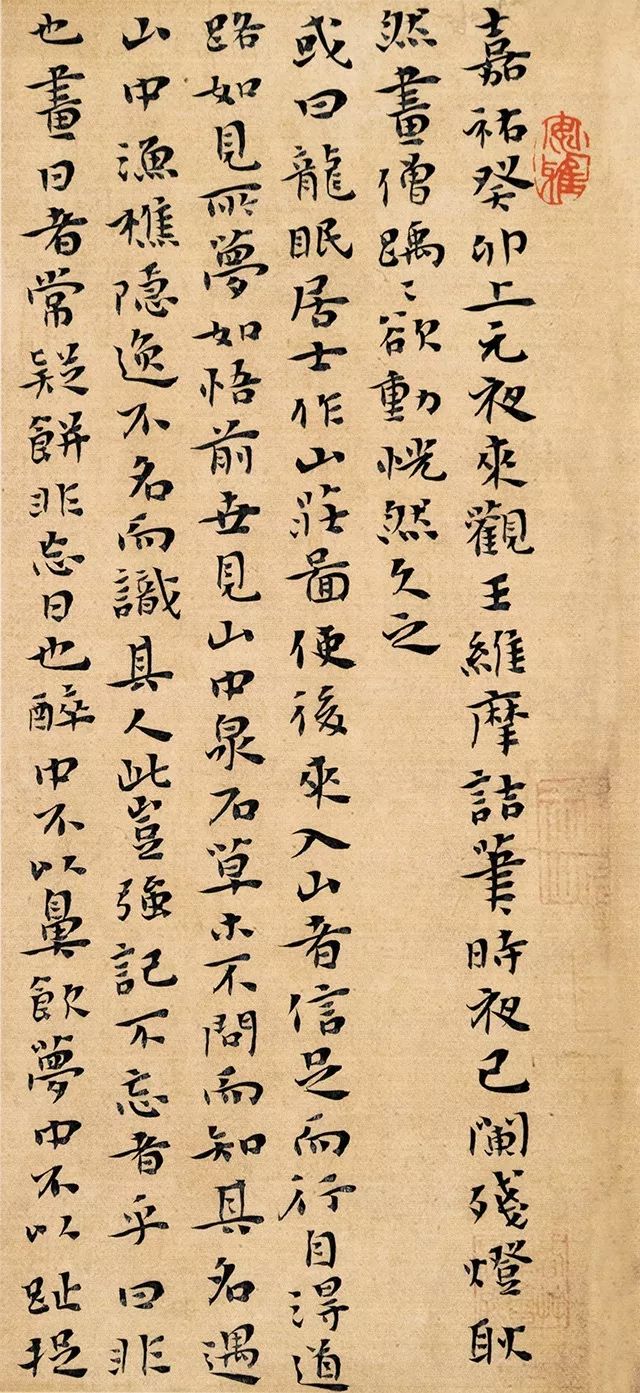 嘉祐癸卯上元夜來觀王維摩詰筆時夜已闌殘燈耿
然畫僧踽〻欲動恍然久之
或曰龍眠居士作山莊圖使後來入山者信足而行自得道
路如見所夢如悟前世見山中泉石草木不問而知其名遇
山中漁樵隱逸不名而識其人此豈強記不忘者乎曰非
也畫日者常疑餅非忘日也醉中不以鼻飲夢中不以趾捉